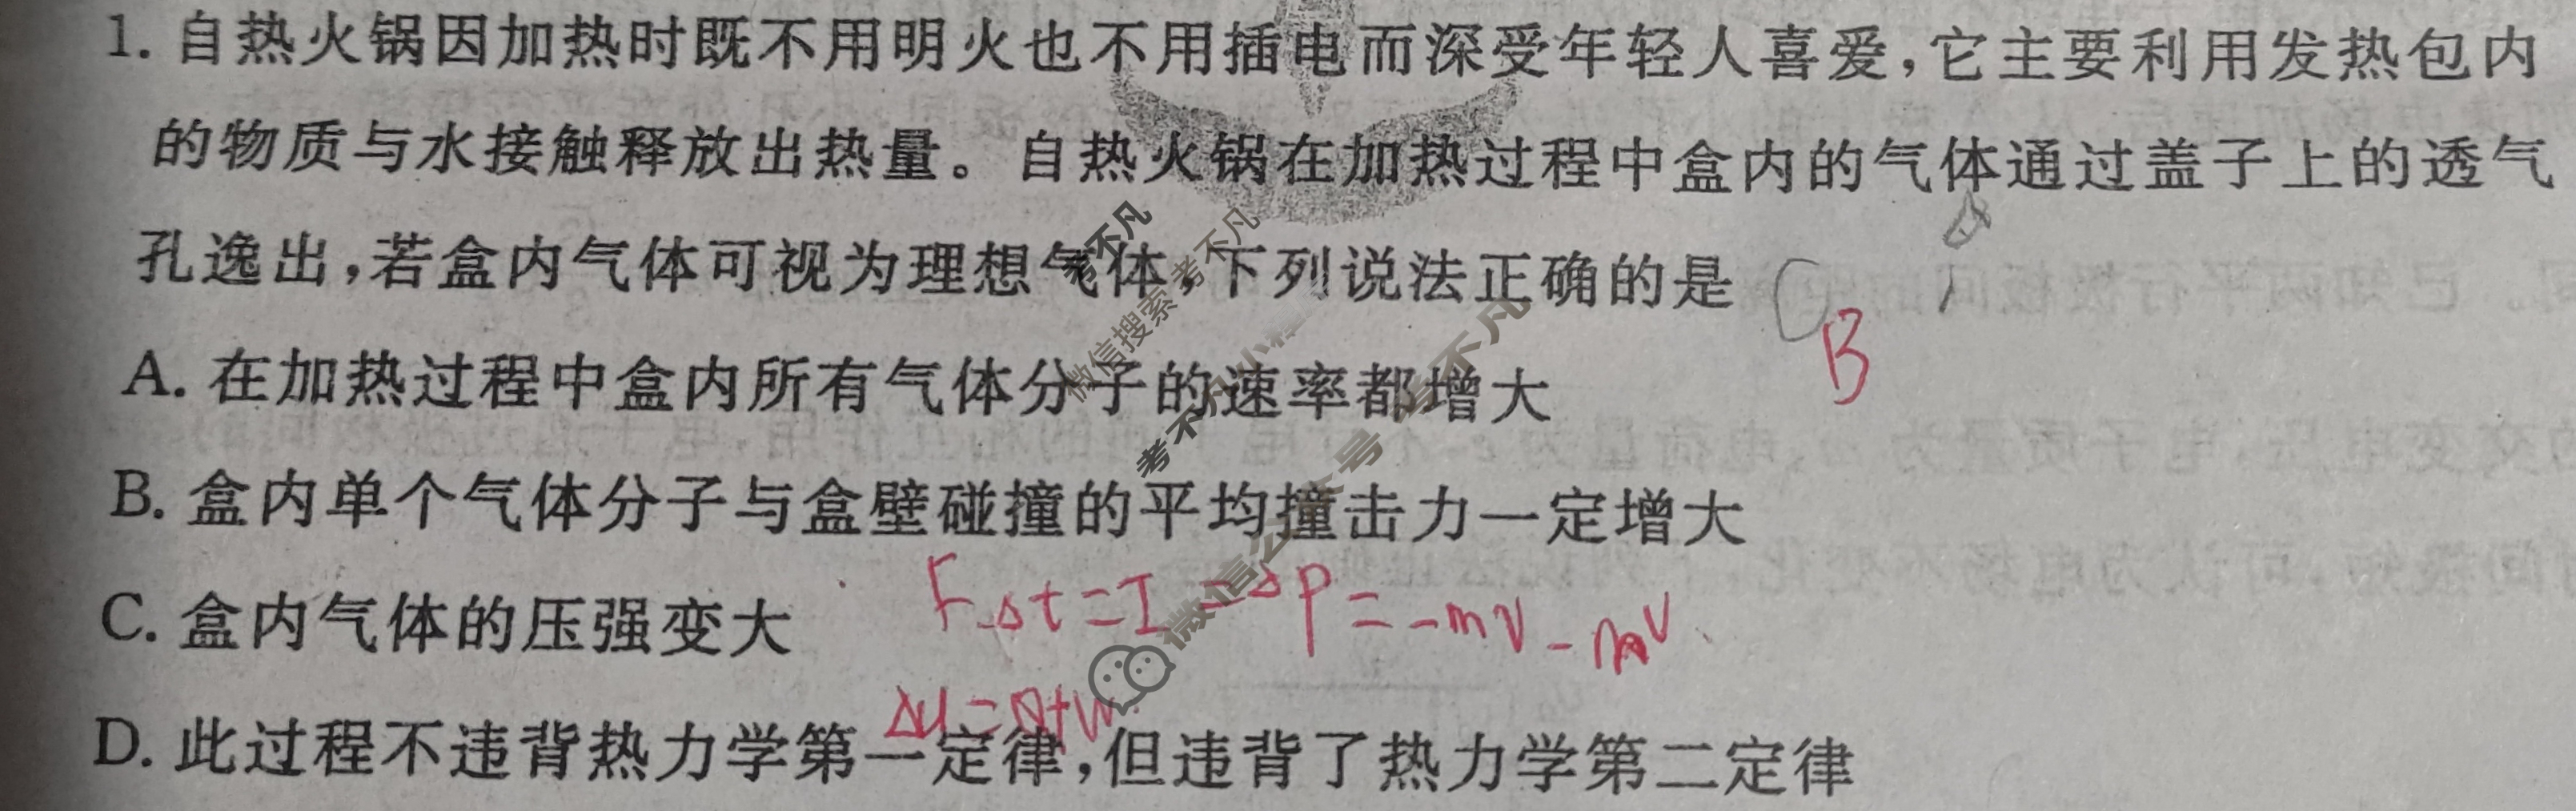 1. 自热火锅因加热时既不用明火也不用插电而深受年轻人喜爱,它主要利用发热包内
的物质与水接触释放出热量。自热火锅在加热过程中盒内的气体通过盖子上的透气
孔逸出,若盒内气体可视为理想气体,下列说法正确的是 C
B
A. 在加热过程中盒内所有气体分子的速率都增大
B. 盒内单个气体分子与盒壁碰撞的平均撞击力一定增大
F·Δt=I=ΔP=-mv-mv
C. 盒内气体的压强变大
ΔU=Q+W
D. 此过程不违背热力学第一定律,但违背了热力学第二定律
考不凡
微信搜索考不凡
微信公众号 考不凡